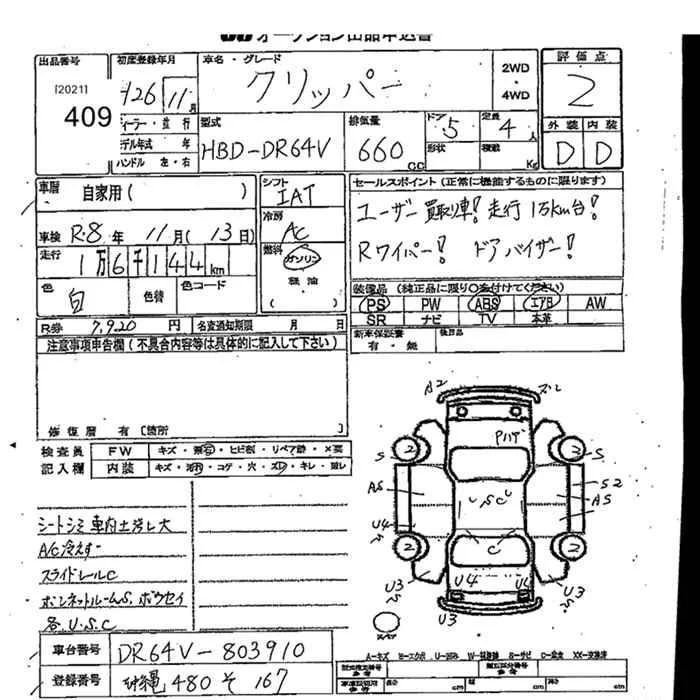 オークション出品申込書
出品番号 初度登録年月 車名・グレード 評価点
[2021]
409
H26 11月 クリッパー 2WD
4WD 2
ディーラー・並行 型式 排気量 ドア 定員 外装 内装
モデル年式 年 HBD-DR64V 660cc 5 4人 D D
ハンドル 左・右 形状 積載 Kg
車歴 自家用( ) シフト IAT セールスポイント(正常に機能するものに限ります)
車検 R.8年 11月(13日) 冷房 AC ユーザー買取り車! 走行1万km台!
走行 1万6千144km 燃料 ガソリン Rワイパー! ドアバイザー!
色 白 色替 色コード 軽油 装備品(純正品に限り○を付けてください)
PS PW ABS エアB AW
SR ナビ TV 本革
R券 7,920円 名義通知期限 月 日 新車保証書 有・無 後日品
注意事項申告欄(不具合内容等は具体的に記入して下さい)
修復歴 有[箇所 ]
検査員 FW キズ・
記入欄 内装 キズ・ ・コゲ・穴・ ・キレ・
シートシミ 車内土汚レ大
A/C冷えず
スライドレールC
ボンネットルームS、ボウセイ
各U.S.C
A2
Pハゲ
S S
2 2
AS S2
AS
SC
U4
2 C 2
U3 U4 U4 U3
S S
U3 U3
車台番号 DR64V-803910
登録番号 沖縄 480 そ 167
A-キズ E-エクボ U-凹み W-補修跡 S-サビ C-腐食 XX-交換済
cm 高さ cm